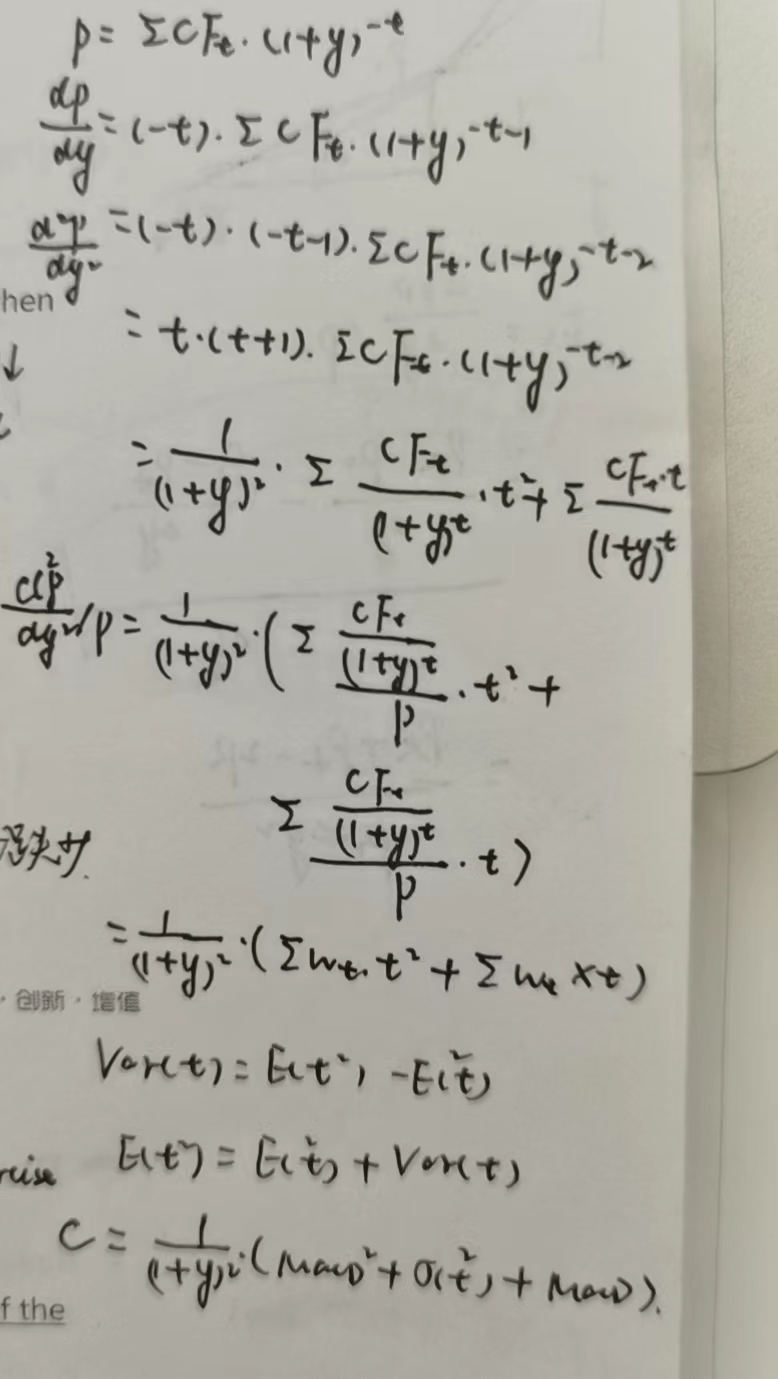 P = ΣCFt · (1+y)^-t
dp/dy = (-t) · ΣCFt · (1+y)^-t-1
d²p/dy² = (-t) · (-t-1) · ΣCFt · (1+y)^-t-2
hen
= t·(t+1) · ΣCFt · (1+y)^-t-2
↓
= 1/(1+y)² · Σ CFt/(1+y)^t · t² + Σ CFt·t/(1+y)^t
d²p/dy²/p = 1/(1+y)² · (Σ CFt/(1+y)^t/P · t² +
Σ CFt/(1+y)^t/P · t)
= 1/(1+y)² · (Σwt · t² + Σwt × t)
· 创新 · 增值
Var(t) = E(t²) - E²(t)
E(t²) = E²(t) + Var(t)
rcise
C = 1/(1+y)² · (MacD² + σ²(t) + MacD).
f the